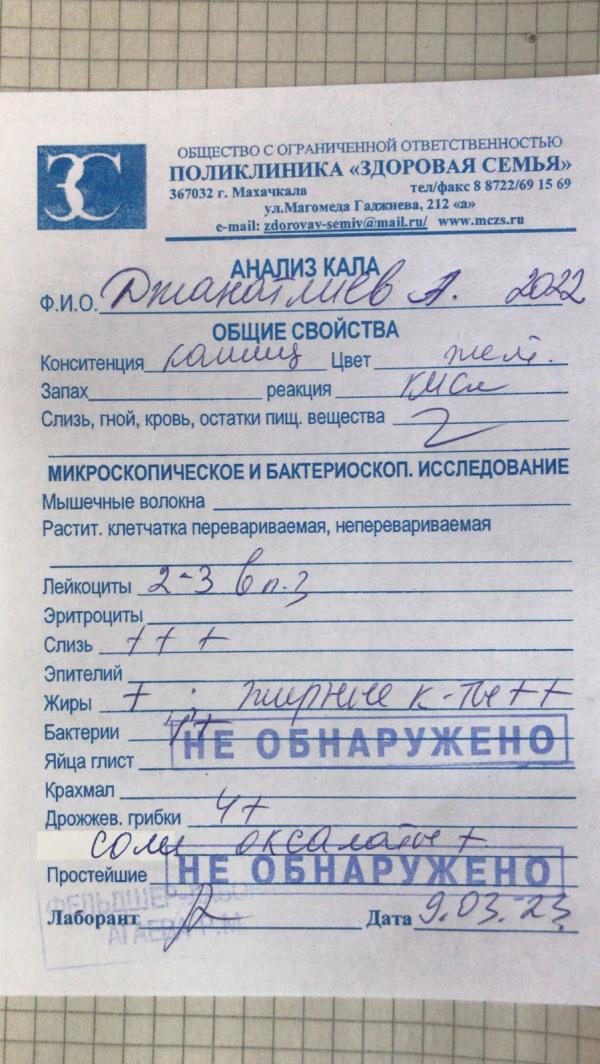 ЗС
ОБЩЕСТВО С ОГРАНИЧЕННОЙ ОТВЕТСТВЕННОСТЬЮ
ПОЛИКЛИНИКА «ЗДОРОВАЯ СЕМЬЯ»
367032 г. Махачкала тел/факс 8 8722/69 15 69
ул.Магомеда Гаджиева, 212 «а»
e-mail: zdorovay-semiy@mail.ru/ www.mczs.ru
АНАЛИЗ КАЛА
Ф.И.О. А. 2022
ОБЩИЕ СВОЙСТВА
Конситенция кашиц Цвет жел.
Запах реакция кисл
Слизь, гной, кровь, остатки пищ. вещества
МИКРОСКОПИЧЕСКОЕ И БАКТЕРИОСКОП. ИССЛЕДОВАНИЕ
Мышечные волокна
Растит. клетчатка перевариваемая, неперевариваемая
Лейкоциты 2-3 в п.з
Эритроциты
Слизь +++
Эпителий
Жиры + ; жирные к-ты ++
Бактерии ++
Яйца глист НЕ ОБНАРУЖЕНО
Крахмал
Дрожжев. грибки 4+
соли оксалаты +
Простейшие НЕ ОБНАРУЖЕНО
ФЕЛЬДШЕР-ЛАБОР
АГАЕВА Р.М.
Лаборант Дата 9.03.23